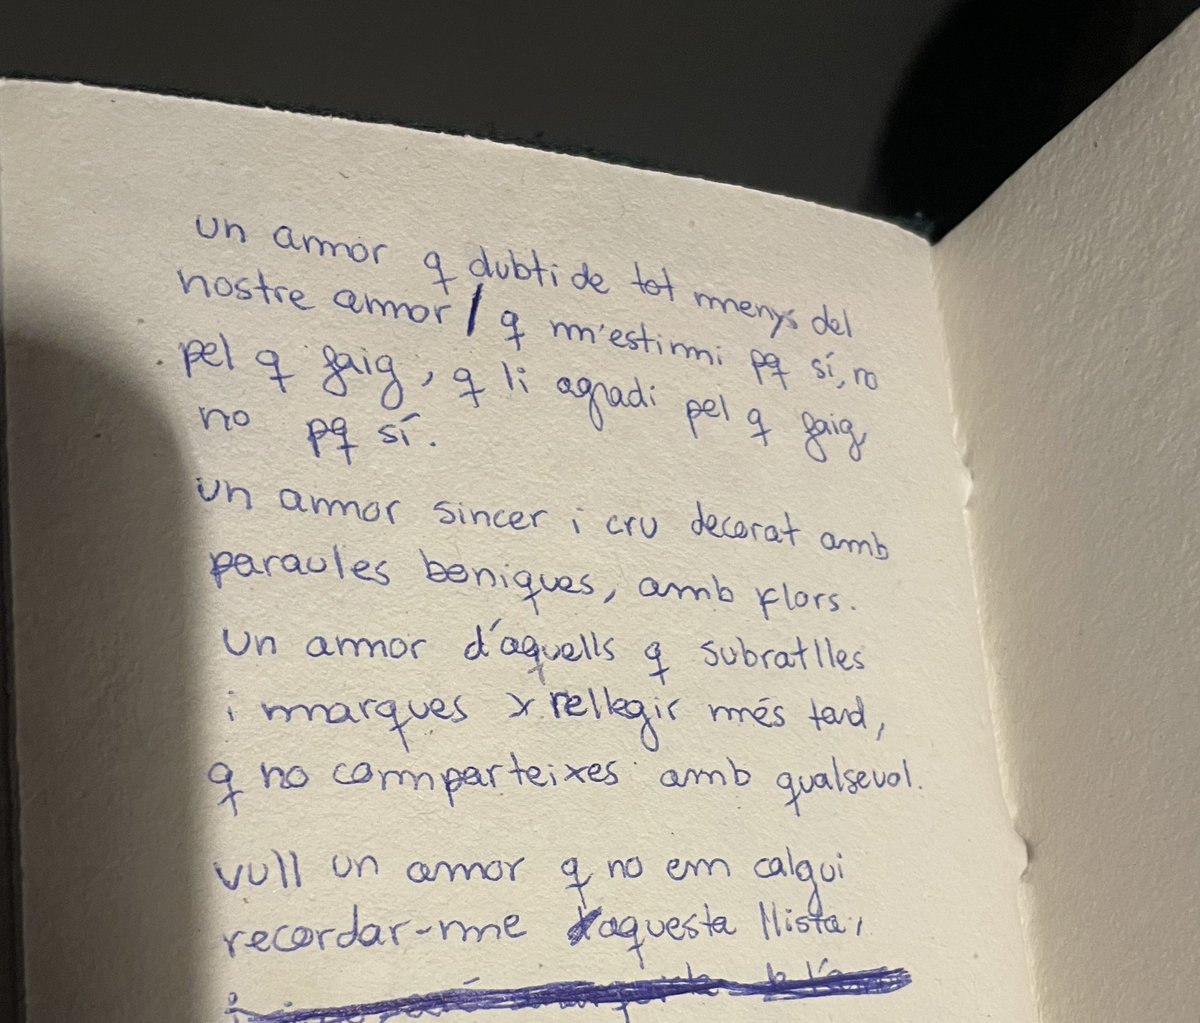 un amor q dubti de tot menys del
nostre amor / q m'estimi pq sí, no
pel q faig, q li agradi pel q faig,
no pq sí.
un amor sincer i cru decorat amb
paraules boniques, amb flors.
un amor d'aquells q subratlles
i marques x rellegir més tard,
q no comparteixes amb qualsevol.
vull un amor q no em calgui
recordar-me aquesta llista,